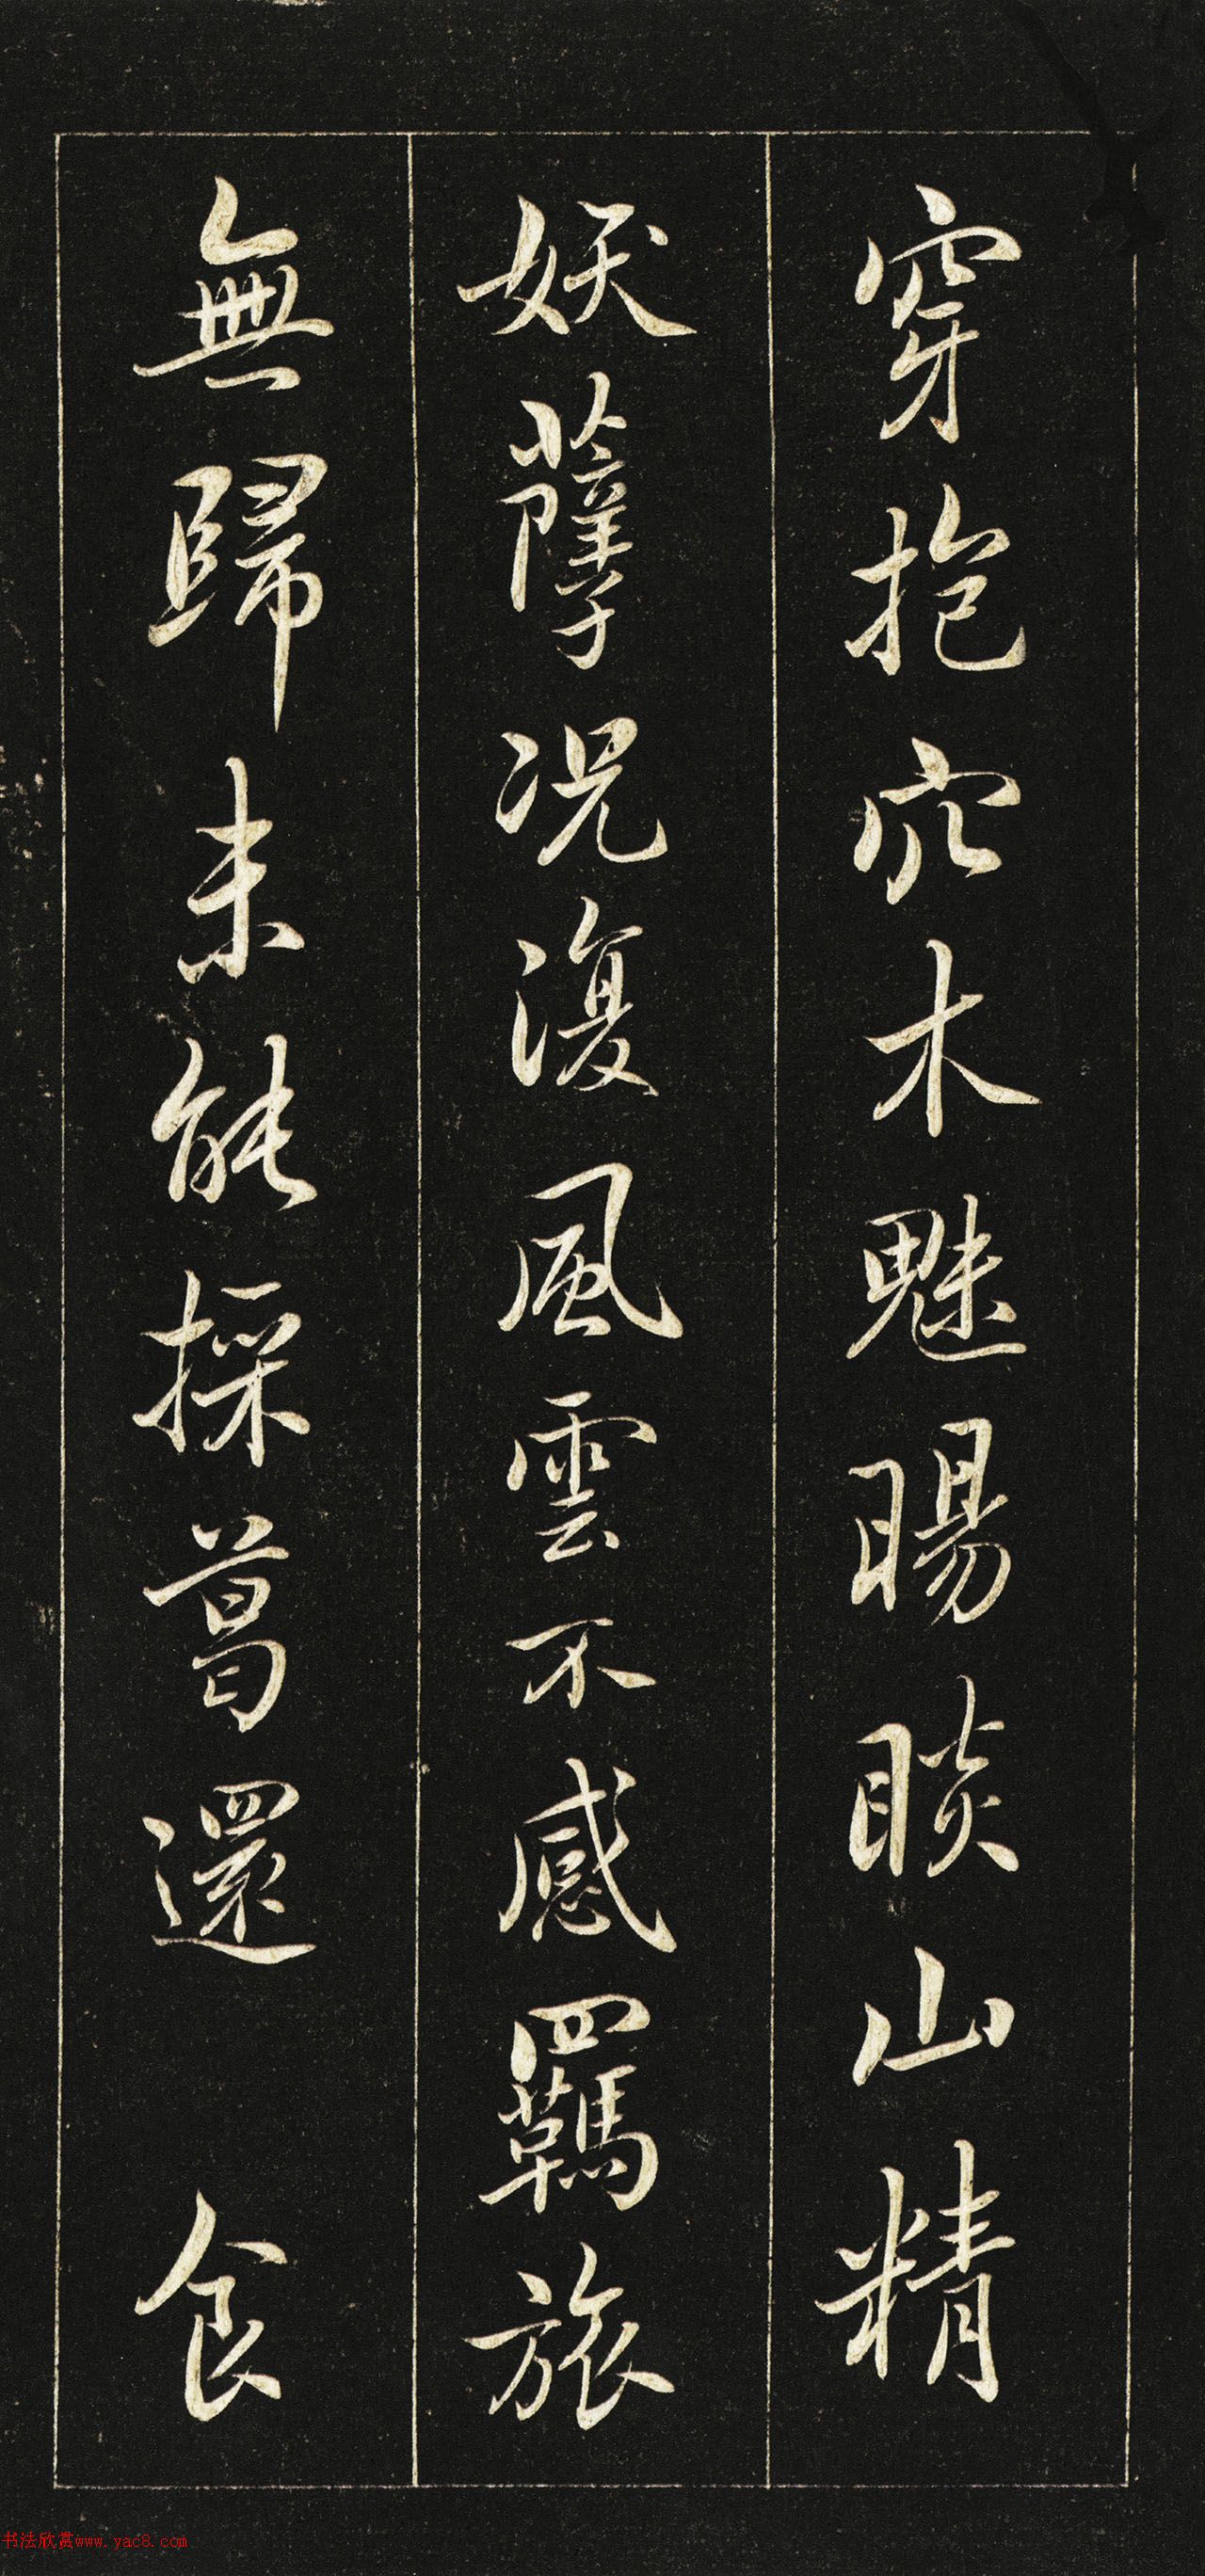 穿抱穴木魅睗睒山精
妖孽况復風雲不感羈旅
無歸未能採葛還 食
书法欣赏www.yac8.com